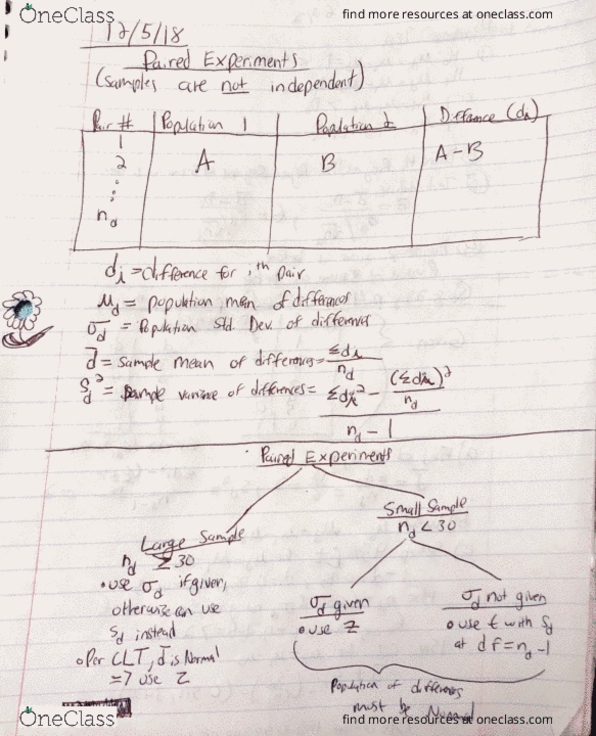 OneClass
find more resources at oneclass.com
12/5/18
Paired Experiments
(samples are not independent)
Pair # Population 1 Population 2 Difference (di)
1
2 A B A-B
⋮
nd
di = difference for ith pair
μd = population mean of differences
σd = Population Std. Dev. of differences
d̄ = sample mean of differences = Σdi / nd
Sd² = sample variance of differences = (Σdi² - (Σdi)² / nd) / (nd - 1)
Paired Experiments
Large Sample
nd ≥ 30
• use σd if given,
otherwise can use
Sd instead
• Per CLT, d̄ is Normal
=> use Z
Small Sample
nd < 30
σd given
• use Z
σd not given
• use t with Sd
at df = nd - 1
Population of differences
must be Normal
OneClass
find more resources at oneclass.com